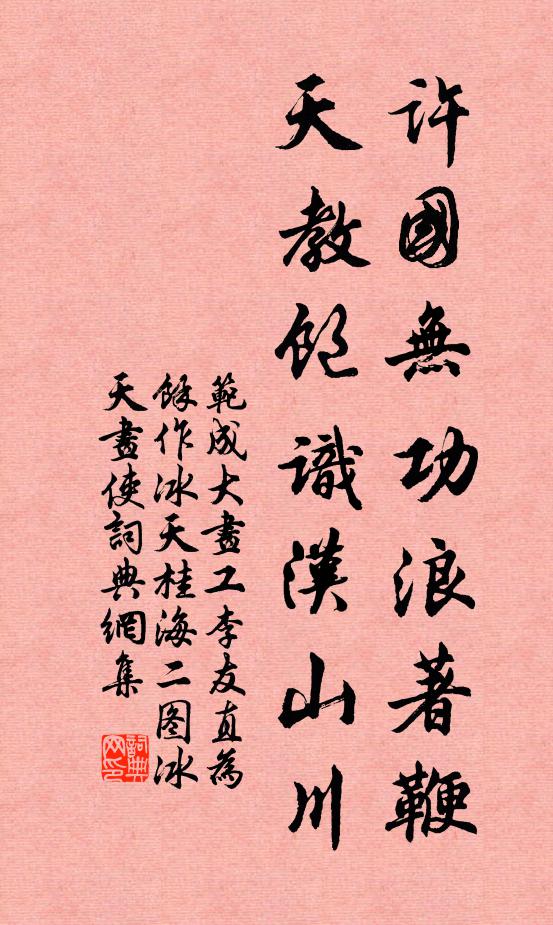 許國無功浪著鞭
天教飽識漢山川
範成大畫工李友直為
餘作冰天桂海二图冰
天畫使詞典網集
詞典
网印